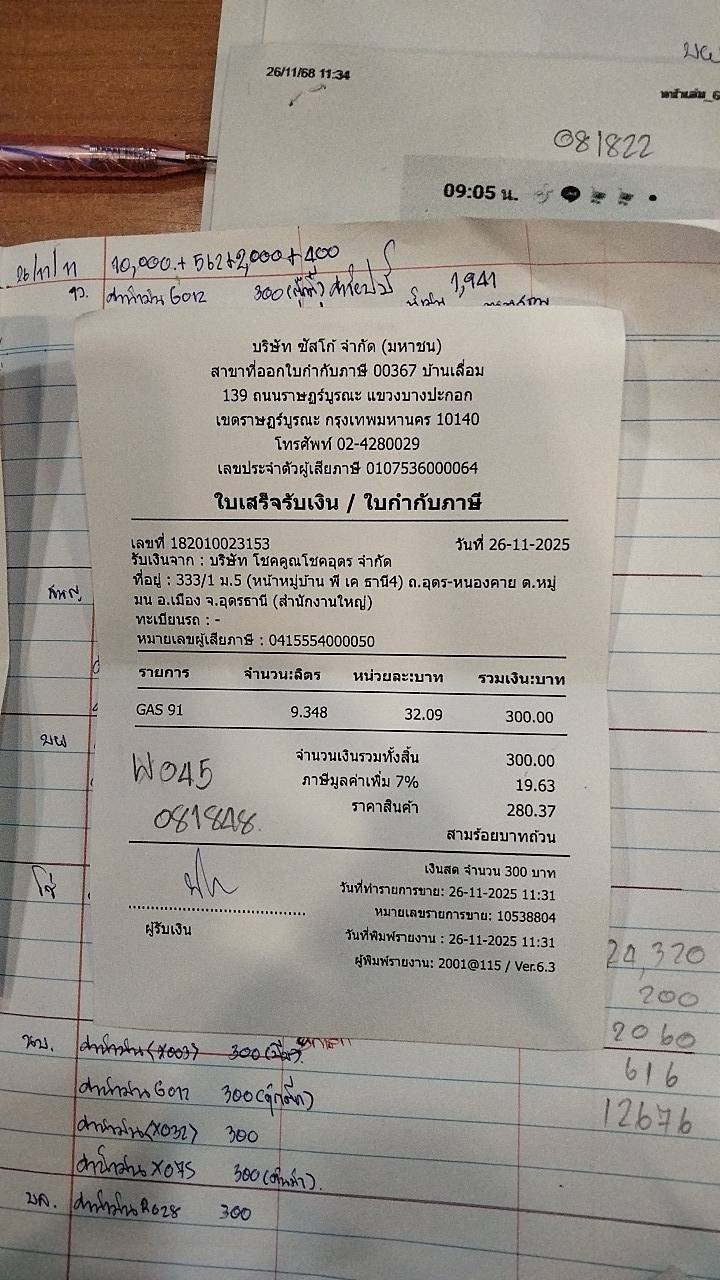 26/11/68 11:34
081822
09:05 น.
26/11/11 10,000.+562+2,000+400
ค่าน้ำมัน G012 300 1,941
บริษัท ซัสโก้ จำกัด (มหาชน)
สาขาที่ออกใบกำกับภาษี 00367 บ้านเลื่อม
139 ถนนราษฎร์บูรณะ แขวงบางปะกอก
เขตราษฏร์บูรณะ กรุงเทพมหานคร 10140
โทรศัพท์ 02-4280029
เลขประจำตัวผู้เสียภาษี 0107536000064
ใบเสร็จรับเงิน / ใบกำกับภาษี
เลขที่ 182010023153 วันที่ 26-11-2025
รับเงินจาก : บริษัท โชคคูณโชคอุดร จำกัด
ที่อยู่ : 333/1 ม.5 (หน้าหมู่บ้าน พี เค ธานี4) ถ.อุดร-หนองคาย ต.หมู่
มน อ.เมือง จ.อุดรธานี (สำนักงานใหญ่)
ทะเบียนรถ : -
หมายเลขผู้เสียภาษี : 0415554000050
รายการ จำนวน:ลิตร หน่วยละ:บาท รวมเงิน:บาท
GAS 91 9.348 32.09 300.00
จำนวนเงินรวมทั้งสิ้น 300.00
W045
ภาษีมูลค่าเพิ่ม 7% 19.63
ราคาสินค้า 280.37
081848.
สามร้อยบาทถ้วน
เงินสด จำนวน 300 บาท
วันที่ทำรายการขาย: 26-11-2025 11:31
หมายเลขรายการขาย: 10538804
ผู้รับเงิน
วันที่พิมพ์รายงาน : 26-11-2025 11:31
ผู้พิมพ์รายงาน: 2001@115 / Ver.6.3
24,320
200
2060
616
12676
นบ. ค่าน้ำมัน(X003) 300
ค่าน้ำมัน G012 300
ค่าน้ำมัน(X032) 300
ค่าน้ำมัน X075 300
บล. ค่าน้ำมัน R028 300